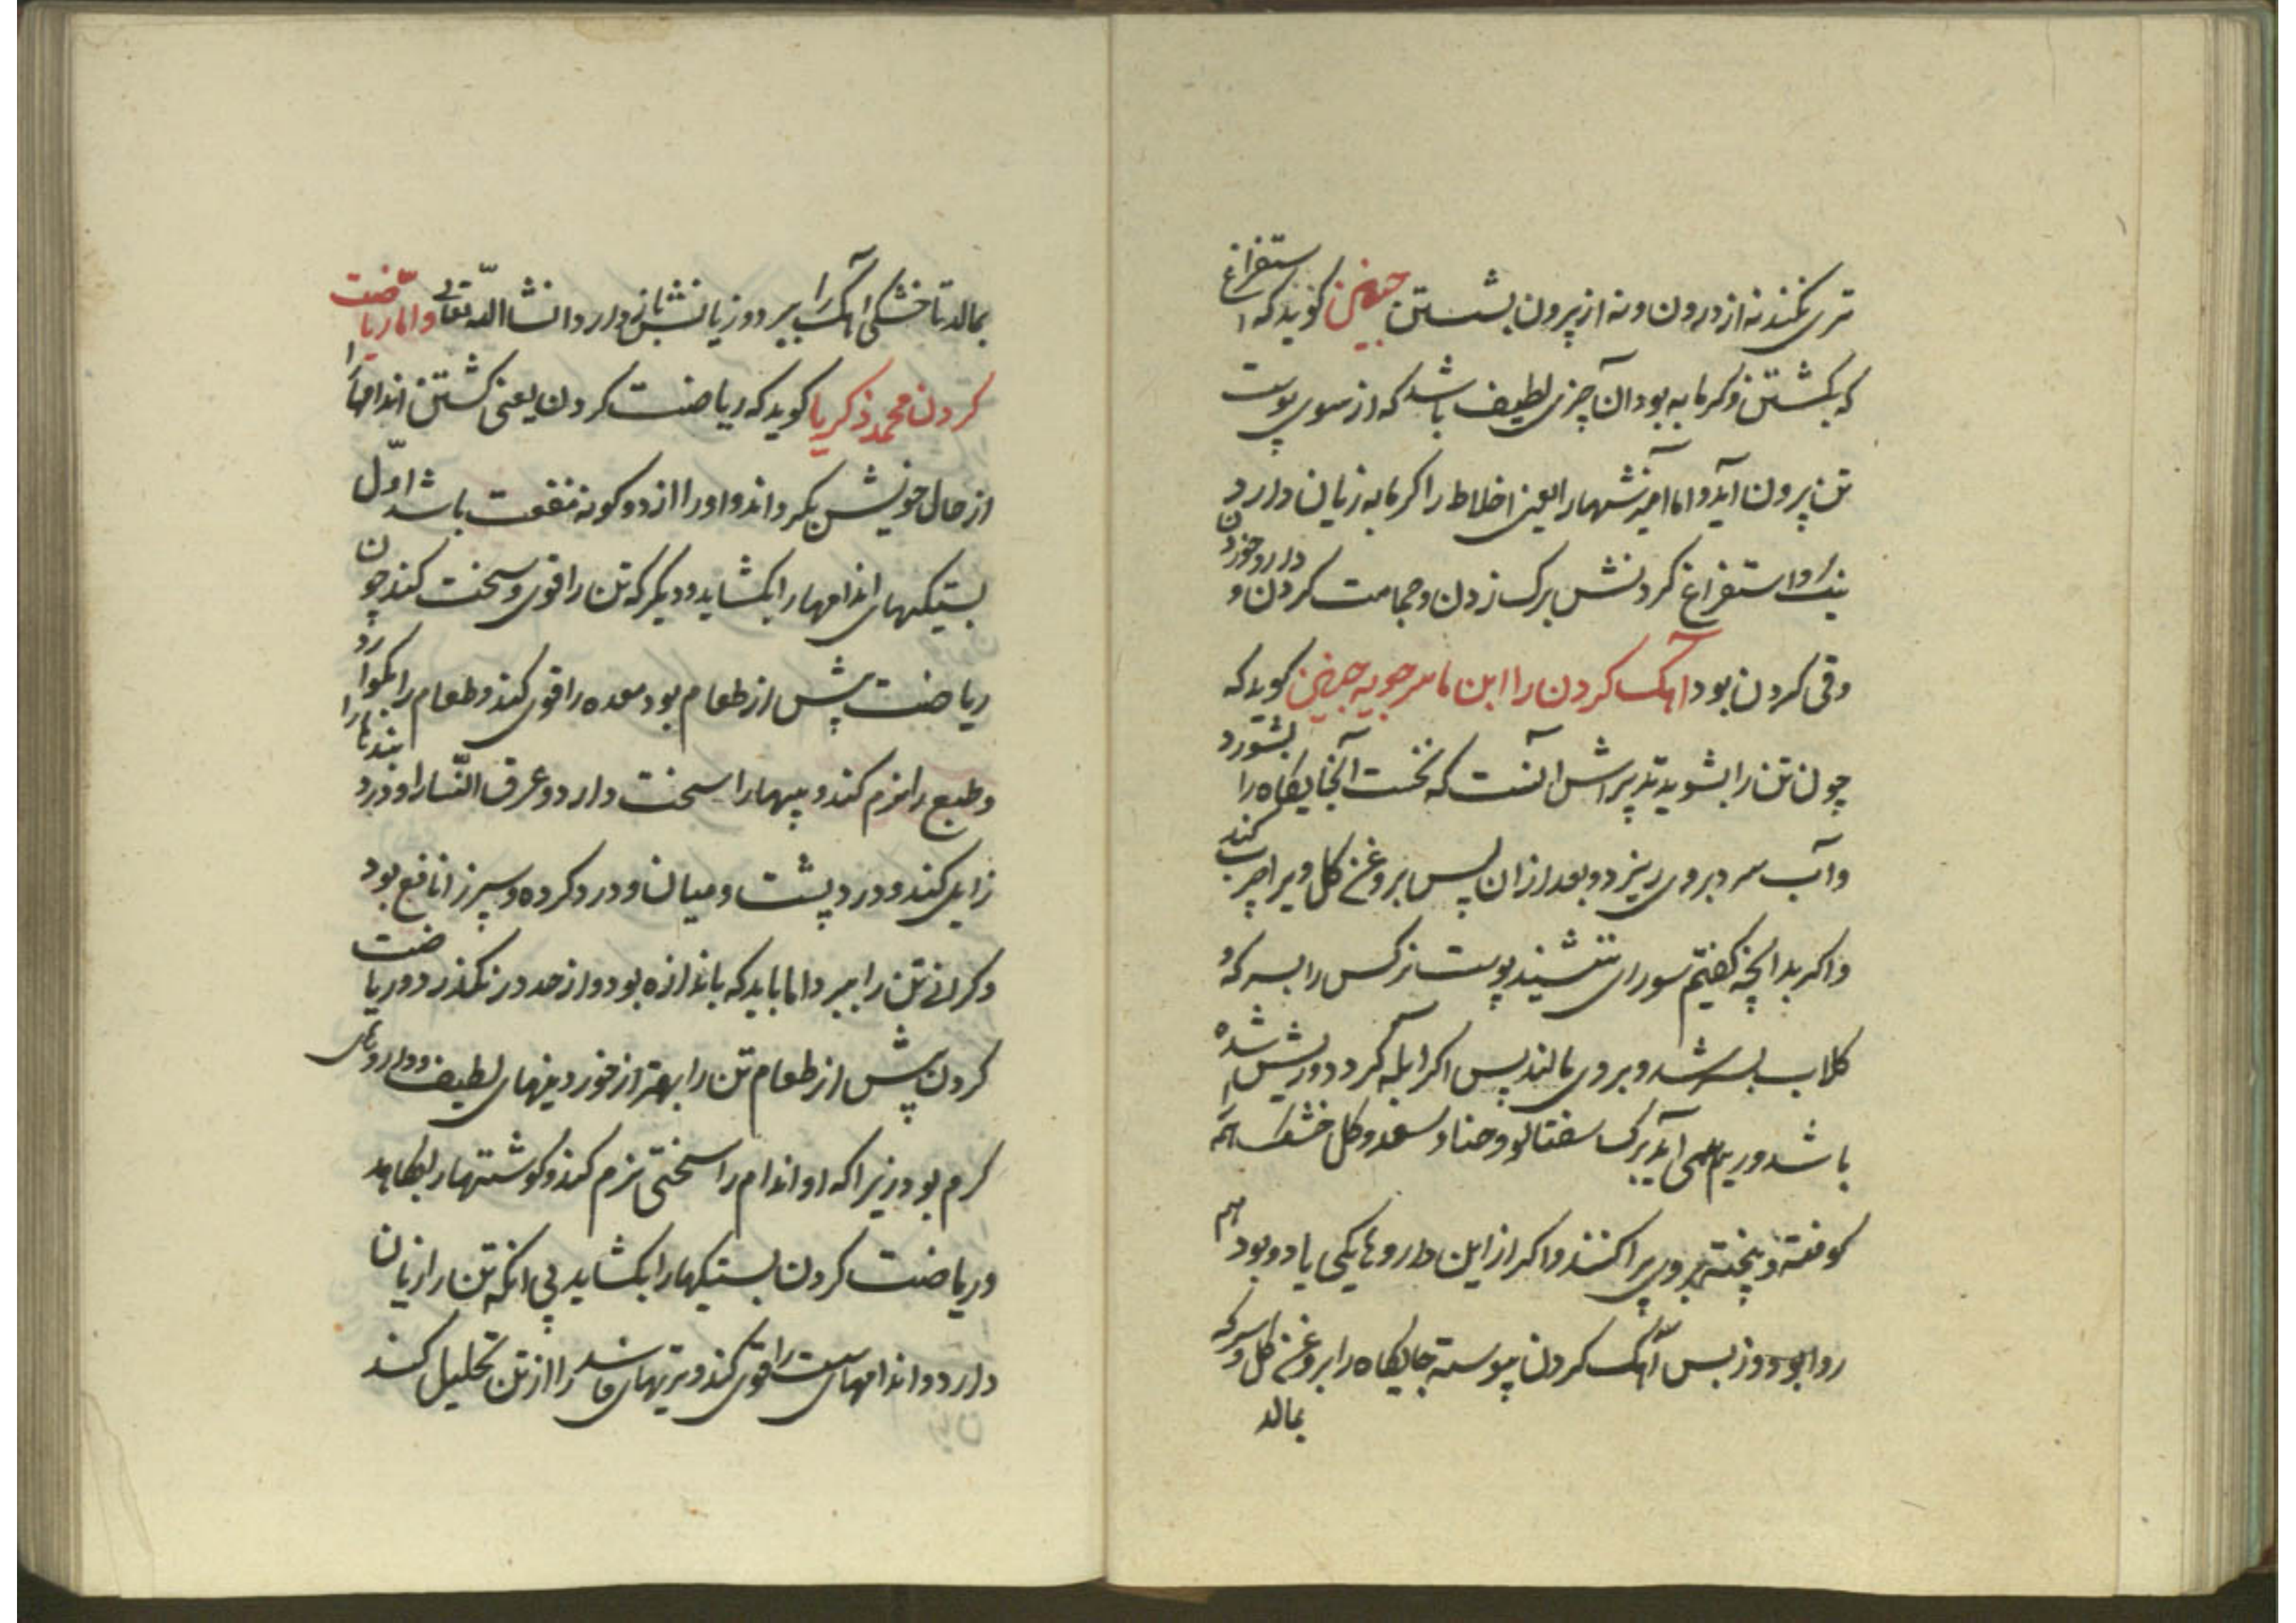 تری نکندنه از درون و نه از پرون بشستن حبیش کوید که استفراغ
که بکشتن و کرمابه بود آن چیزی لطیف باشد که از سوی پوست
تن پرون آید و اما آمیزشهارا یعنی اخلاط را کرمابه زیان دارد و
استفراغ کردنش برک زدن و حجامت کردن و دارو خوردن
وقی کردن بود آهک کردن را ابن کوید که
چون تن را بشوید تدپرش آنست که نخست آنجایکاه را بشورد
وآب سرد بروی ریزد و بعد از ان پس بروغن کل ویرا چرب کند
واکر بدانچه کفتیم سورای ننشیند پوست نرکس را بسرکه و
کلاب بسرشد و بروی مالند پس اکر آبله کردد و ریش شده
باشد و ریم همی آید برک سفتالو و حنا و سعد و کل خشک همه
کوفته و پخته بروی پراکنند و اکر از این داروها یکی یا دو بود هم
روا بود و ز بس آهک کردن پیوسته جایکاه را بروغن کل و سرکه
بمالد
بمالد تا خشکی آهک را ببرد و زیانش باز دارد انشاالله تعالی واما ریاضت
کردن محمد ذکریا کوید که ریاضت کردن یعنی کشتن اندامها را
از حال خویش بکرداند و او را از دو کونه منفعت باشد اول
بستیکهای اندامها را بکشاید و دیکر که تن را قوی و سخت کند چون
ریاضت پش از طعام بود معده را قوی کند و طعام را بکوارد
وطبع را نرم کند و پیها را سخت دارد و عرق النسا را و درد بندها را
زایل کند و درد پشت و میان و درد کرده و سپرز را نافع بود
و کرانی تن را ببرد اما باید که باندازه بود و از حد در نکذرد و ریاضت
کردن پش از طعام تن را بهتر از خوردنیهای لطیف و داروهای
کرم بود زیرا که او اندام را سختی نرم کند و کوشتها را بکاهد
وریاضت کردن بستیکها را بکشاید بی انکه تن را زیان
دارد و اندامهای سست را قوی کند و تریهای فاسد را از تن تحلیل کند